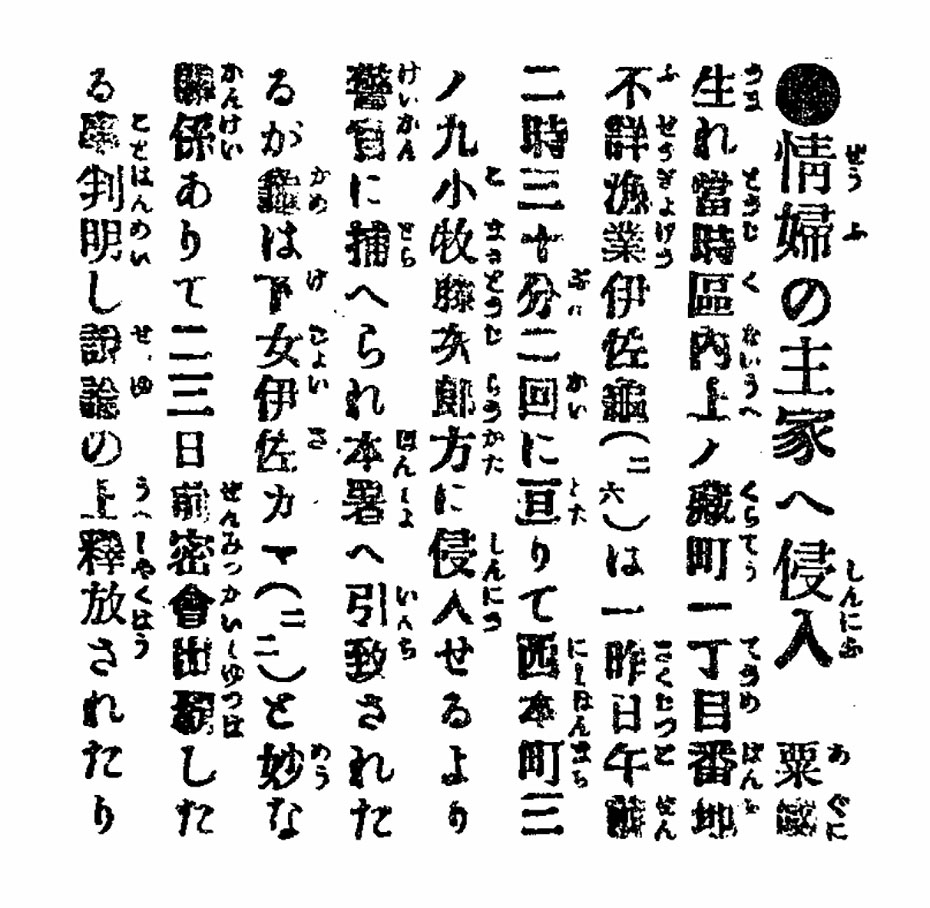 ●情婦の主家へ侵入　粟國
生れ當時區内上ノ藏町一丁目番地
不詳漁業伊佐龜（二六）は一昨日午前
二時三十分二回に亘りて西本町三
ノ九小牧藤次郎方に侵入せるより
警官に捕へられ本署へ引致された
るが龜は下女伊佐カマ（二二）と妙な
關係ありて二三日前密會出額した
る事判明し説諭の上釋放されたり